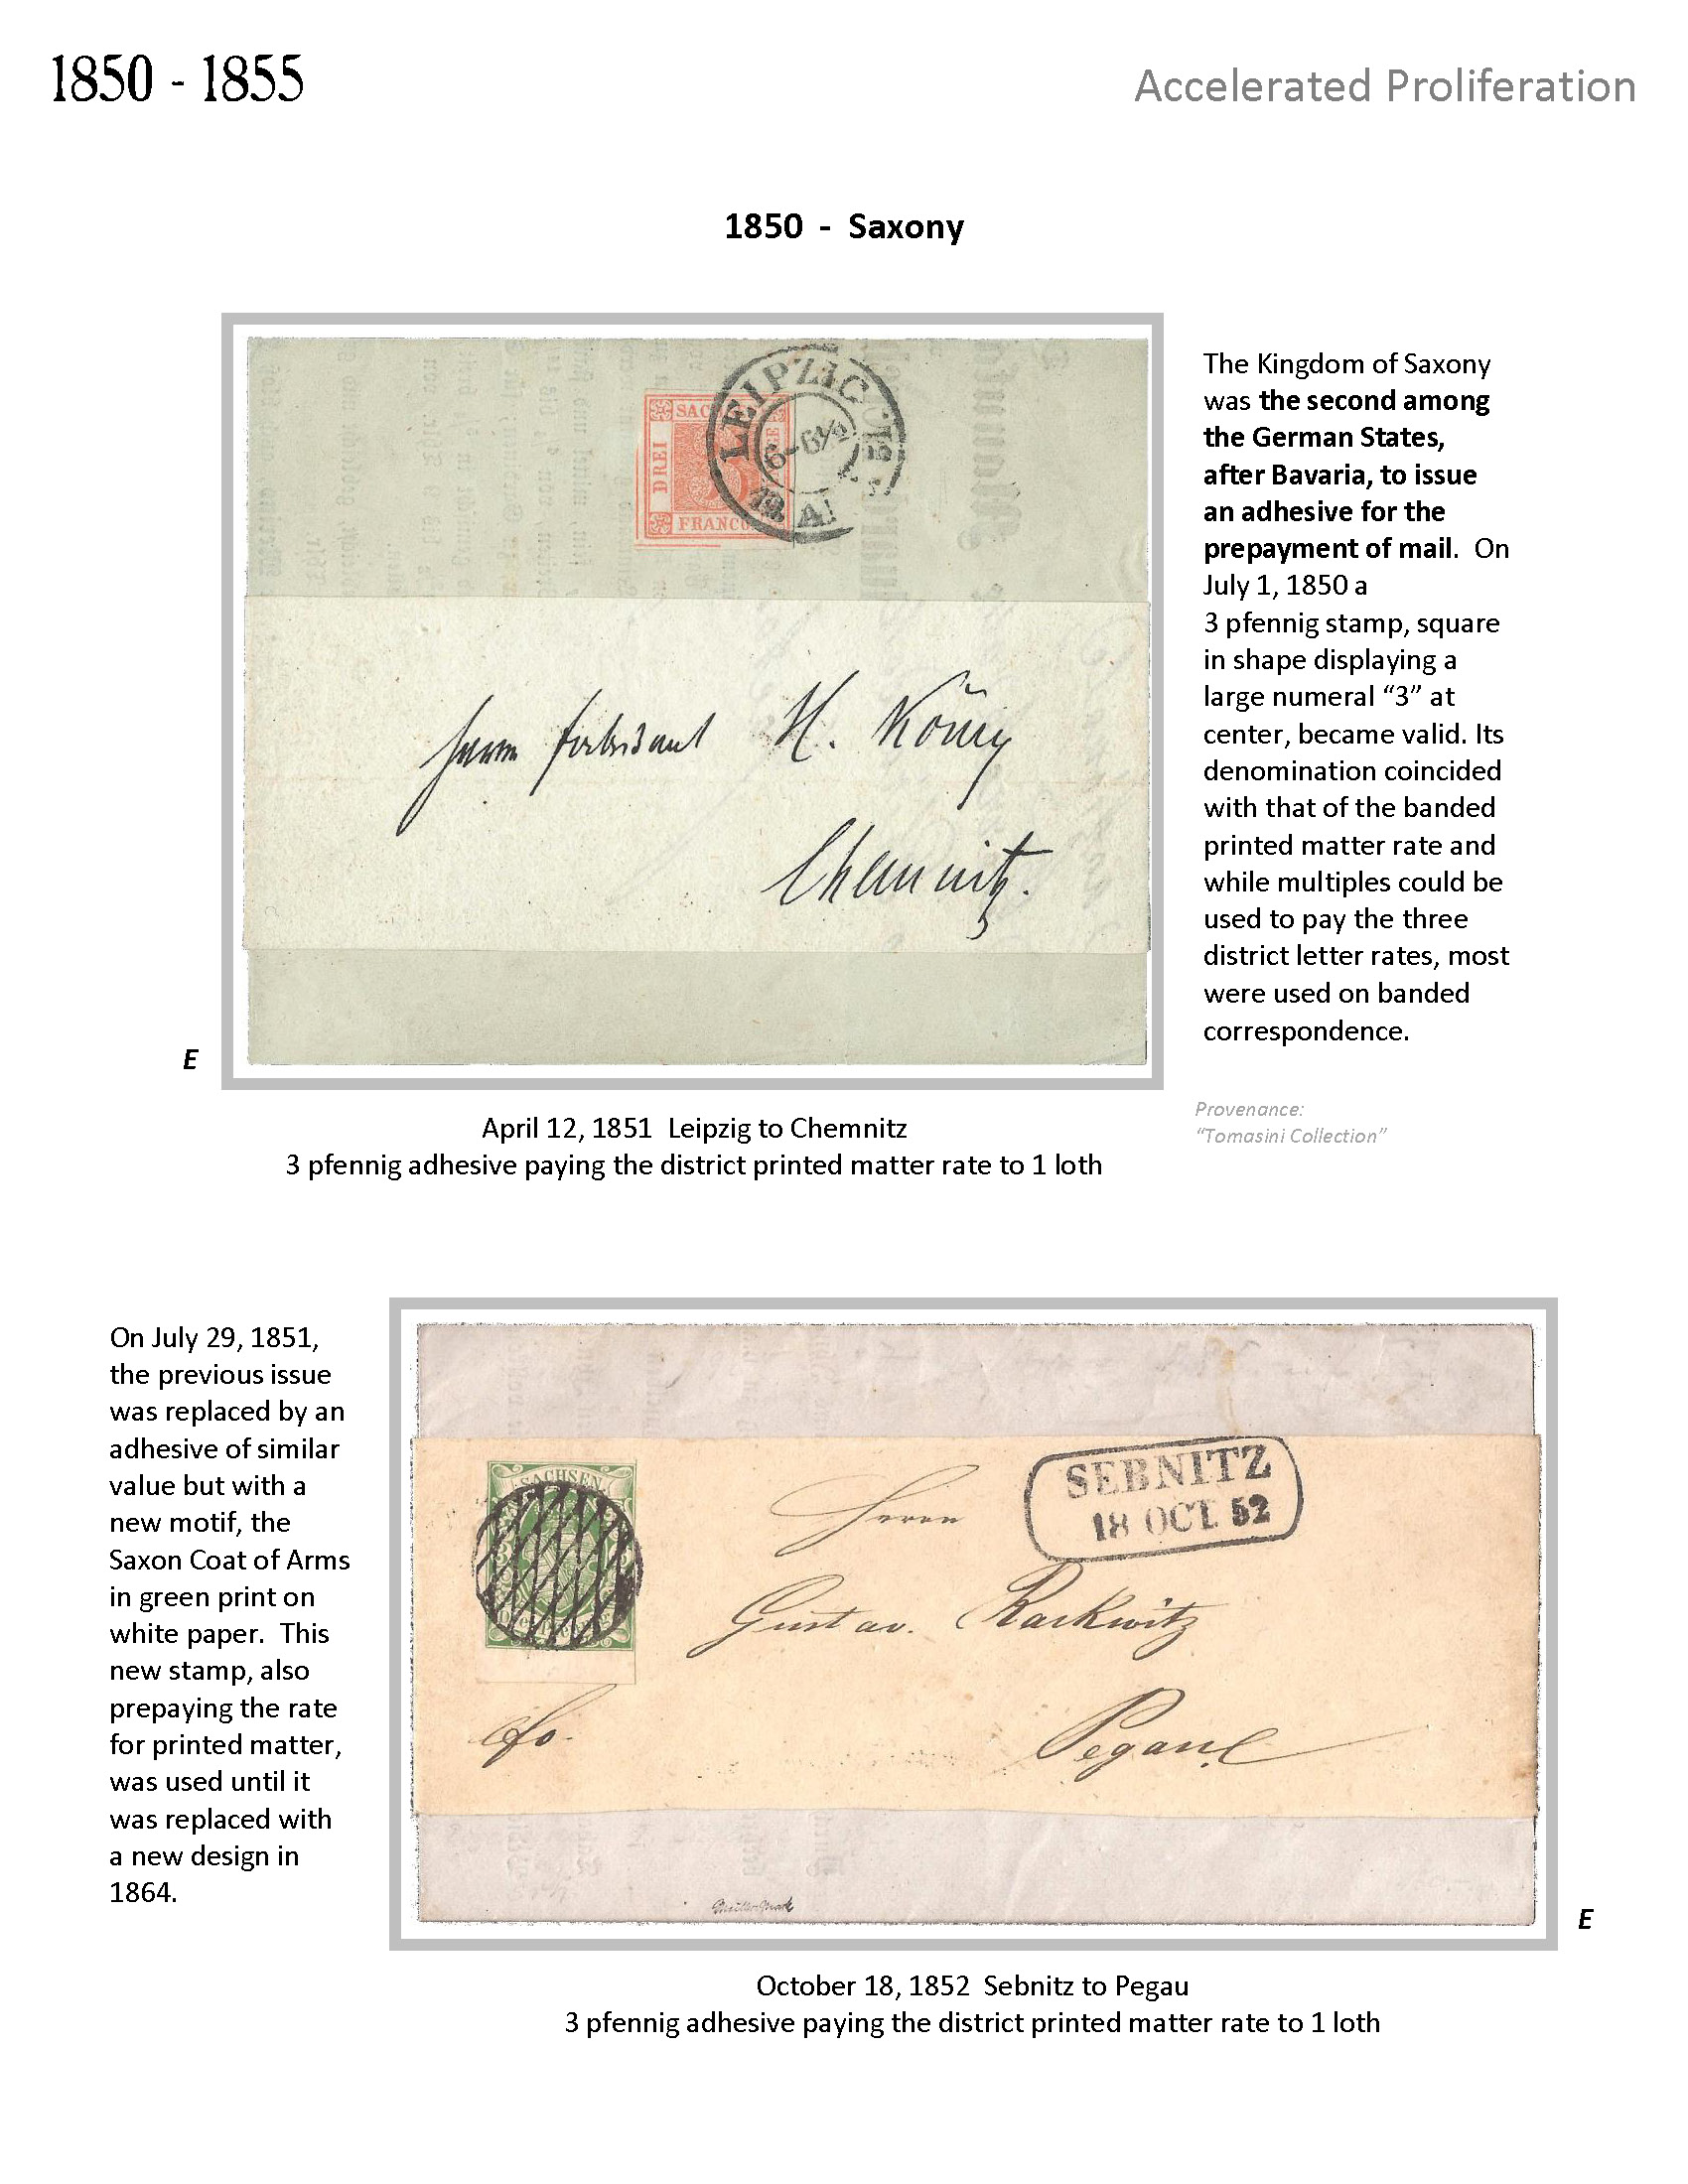 1850 - 1855
Accelerated Proliferation
1850 - Saxony
LEIPZIG
6-6½
12 A
SAC
DREI
FRANCO
Herrn Fabrikant H. König
Chemnitz.
E
The Kingdom of Saxony
was the second among
the German States,
after Bavaria, to issue
an adhesive for the
prepayment of mail. On
July 1, 1850 a
3 pfennig stamp, square
in shape displaying a
large numeral “3” at
center, became valid. Its
denomination coincided
with that of the banded
printed matter rate and
while multiples could be
used to pay the three
district letter rates, most
were used on banded
correspondence.
Provenance:
“Tomasini Collection”
April 12, 1851 Leipzig to Chemnitz
3 pfennig adhesive paying the district printed matter rate to 1 loth
On July 29, 1851,
the previous issue
was replaced by an
adhesive of similar
value but with a
new motif, the
Saxon Coat of Arms
in green print on
white paper. This
new stamp, also
prepaying the rate
for printed matter,
was used until it
was replaced with
a new design in
1864.
SACHSEN
SEBNITZ
18 OCT. 52
Herrn
Gustav. Rackwitz
fo.
Pegau
E
October 18, 1852 Sebnitz to Pegau
3 pfennig adhesive paying the district printed matter rate to 1 loth